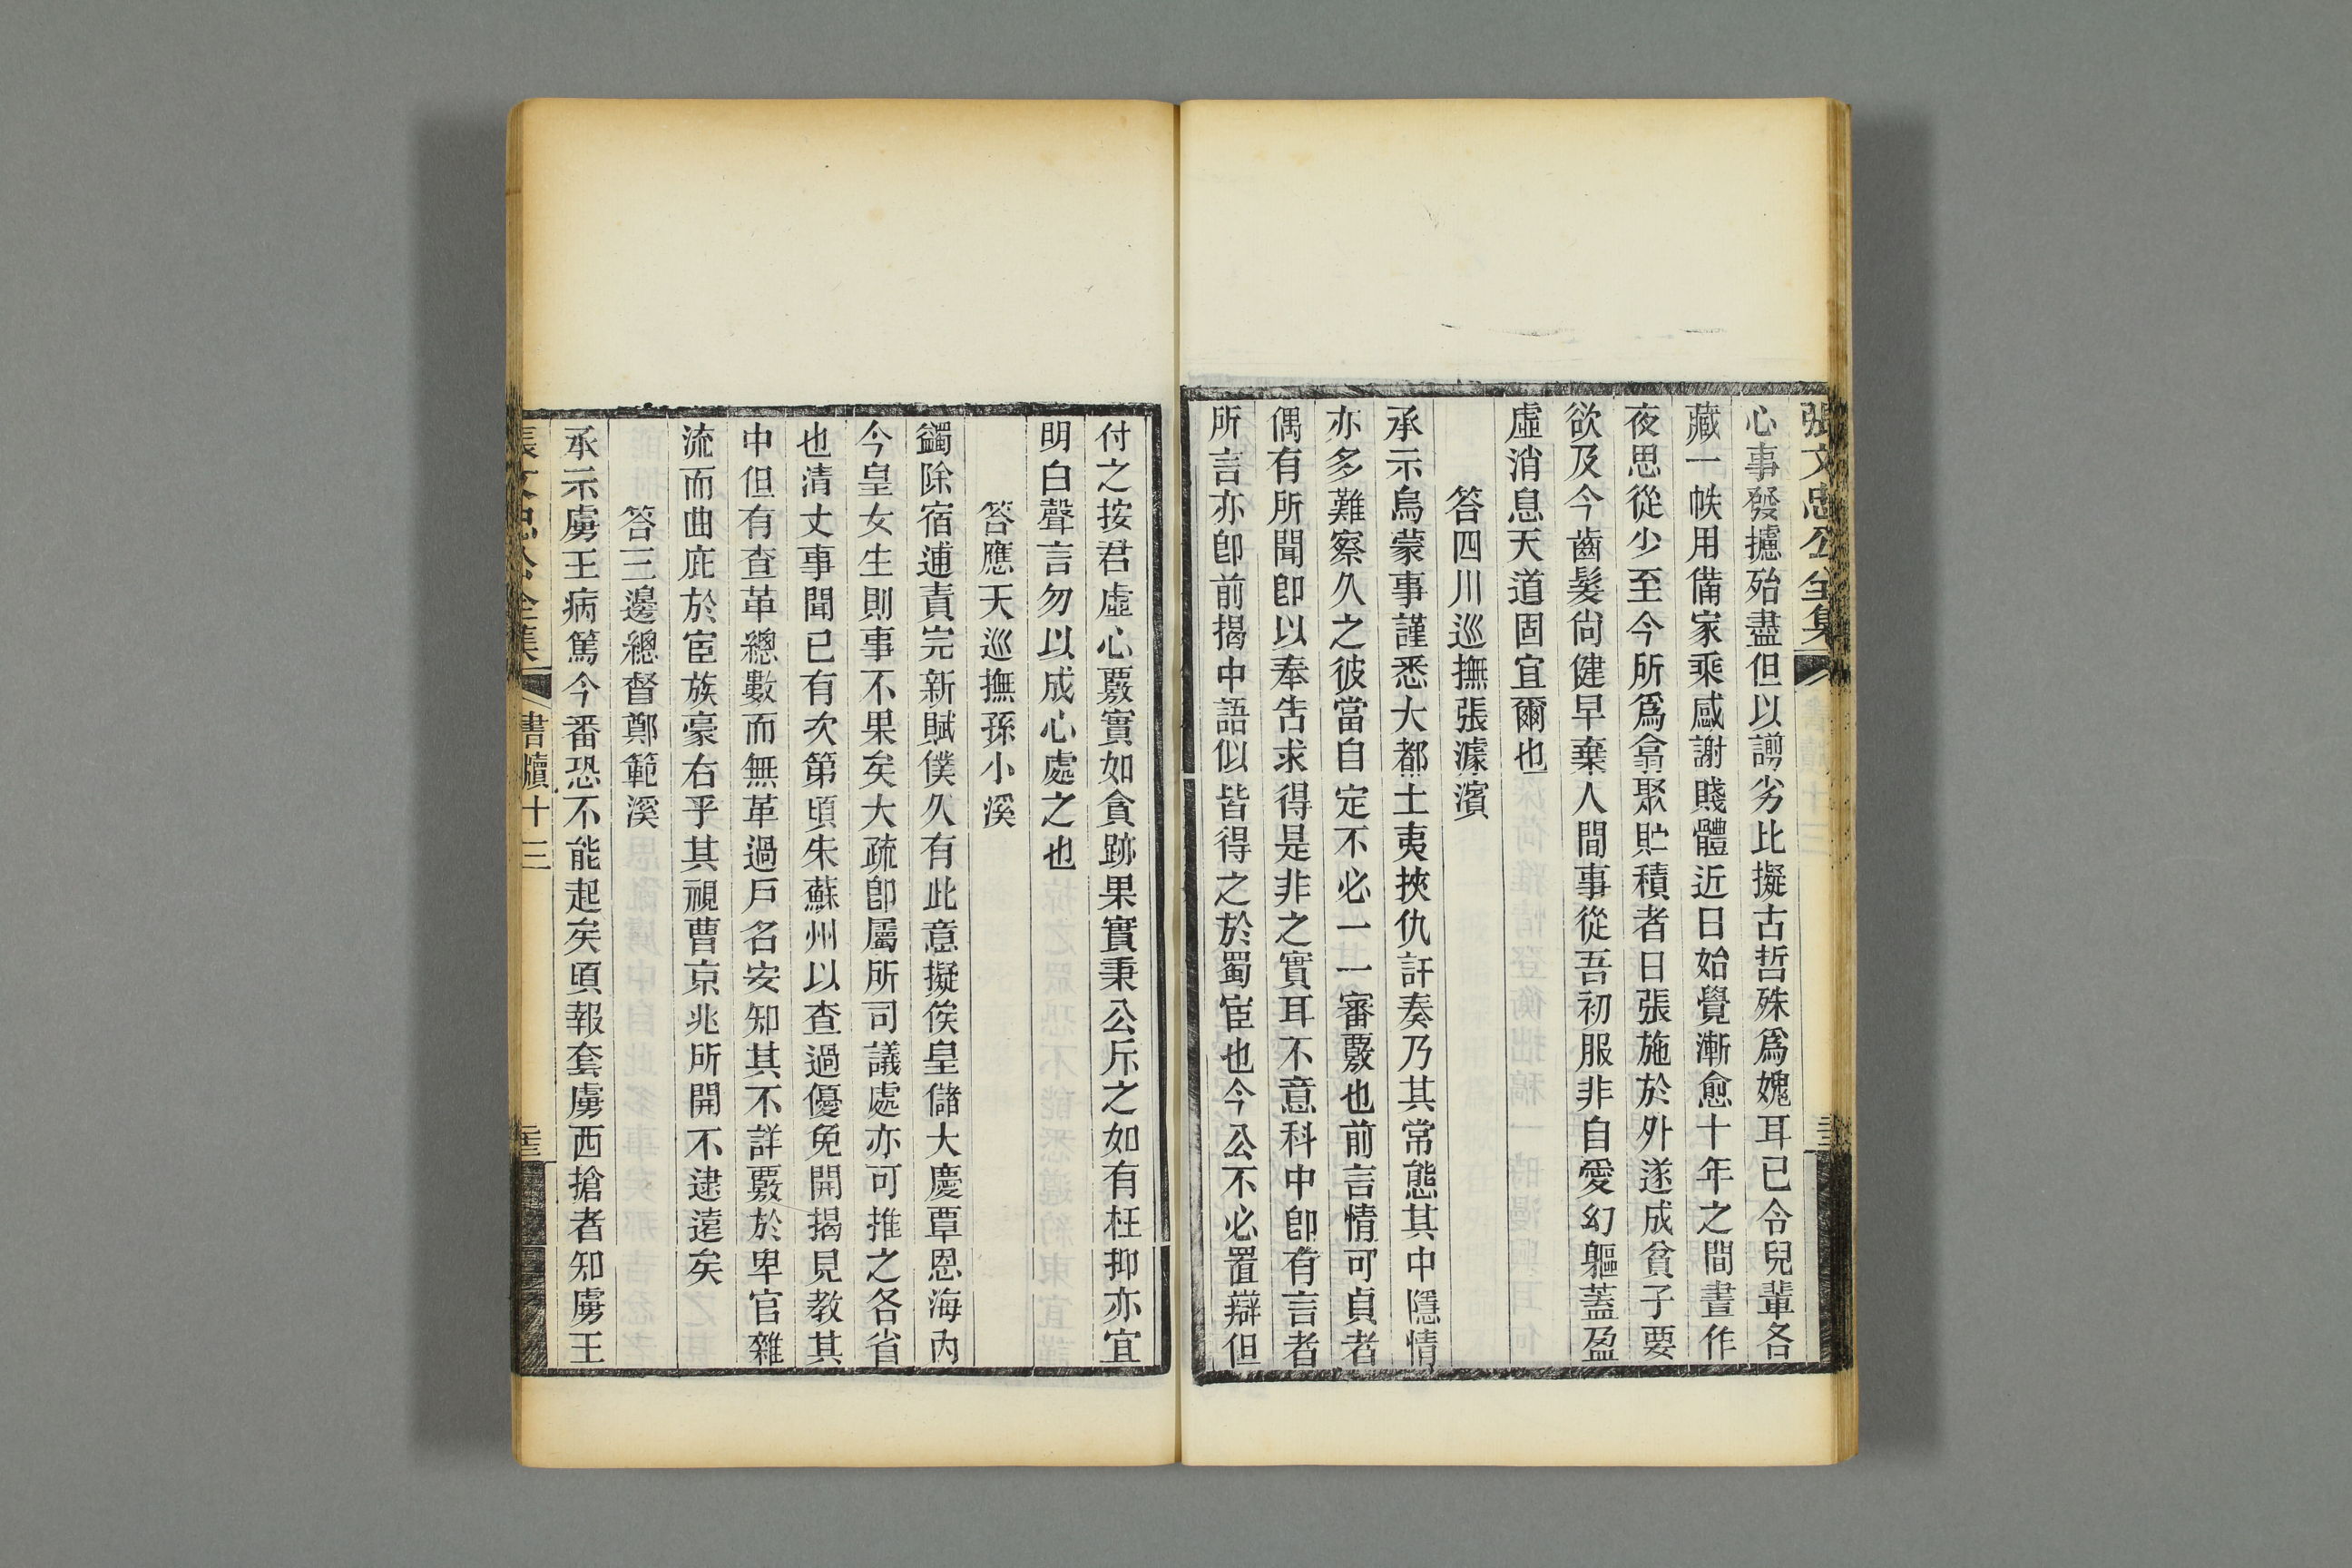 張文忠公全集
心事發攄殆盡但以謭劣比擬古哲殊爲媿耳已令兒輩各
藏一帙用備家乘感謝賤體近日始覺漸愈十年之間晝作
夜思從少至今所爲翕聚貯積者日張施於外遂成貧子要
欲及今齒髮尙健早棄人間事從吾初服非自愛幻軀蓋盈
虛消息天道固宜爾也
答四川巡撫張濾濱
承示烏蒙事謹悉大都土夷挾仇訐奏乃其常態其中隱情
亦多難察久之彼當自定不必一一審覈也前言情可貞者
偶有所聞卽以奉吿求得是非之實耳不意科中卽有言者
所言亦卽前揭中語似皆得之於蜀宦也今公不必置辯但
付之按君虛心覈實如貪跡果實秉公斥之如有枉抑亦宜
明白聲言勿以成心處之也
答應天巡撫孫小溪
蠲除宿逋責完新賦僕久有此意擬俟皇儲大慶覃恩海內
今皇女生則事不果矣大疏卽屬所司議處亦可推之各省
也清丈事聞已有次第頃朱蘇州以查過優免開揭見教其
中但有查革總數而無革過戶名安知其不詳覈於卑官雜
流而曲庇於宦族豪右乎其視曹京兆所開不逮遠矣
答三邊總督鄭範溪
承示虜王病篤今番恐不能起矣頃報套虜西搶者知虜王
張文忠公全集
書牘十三